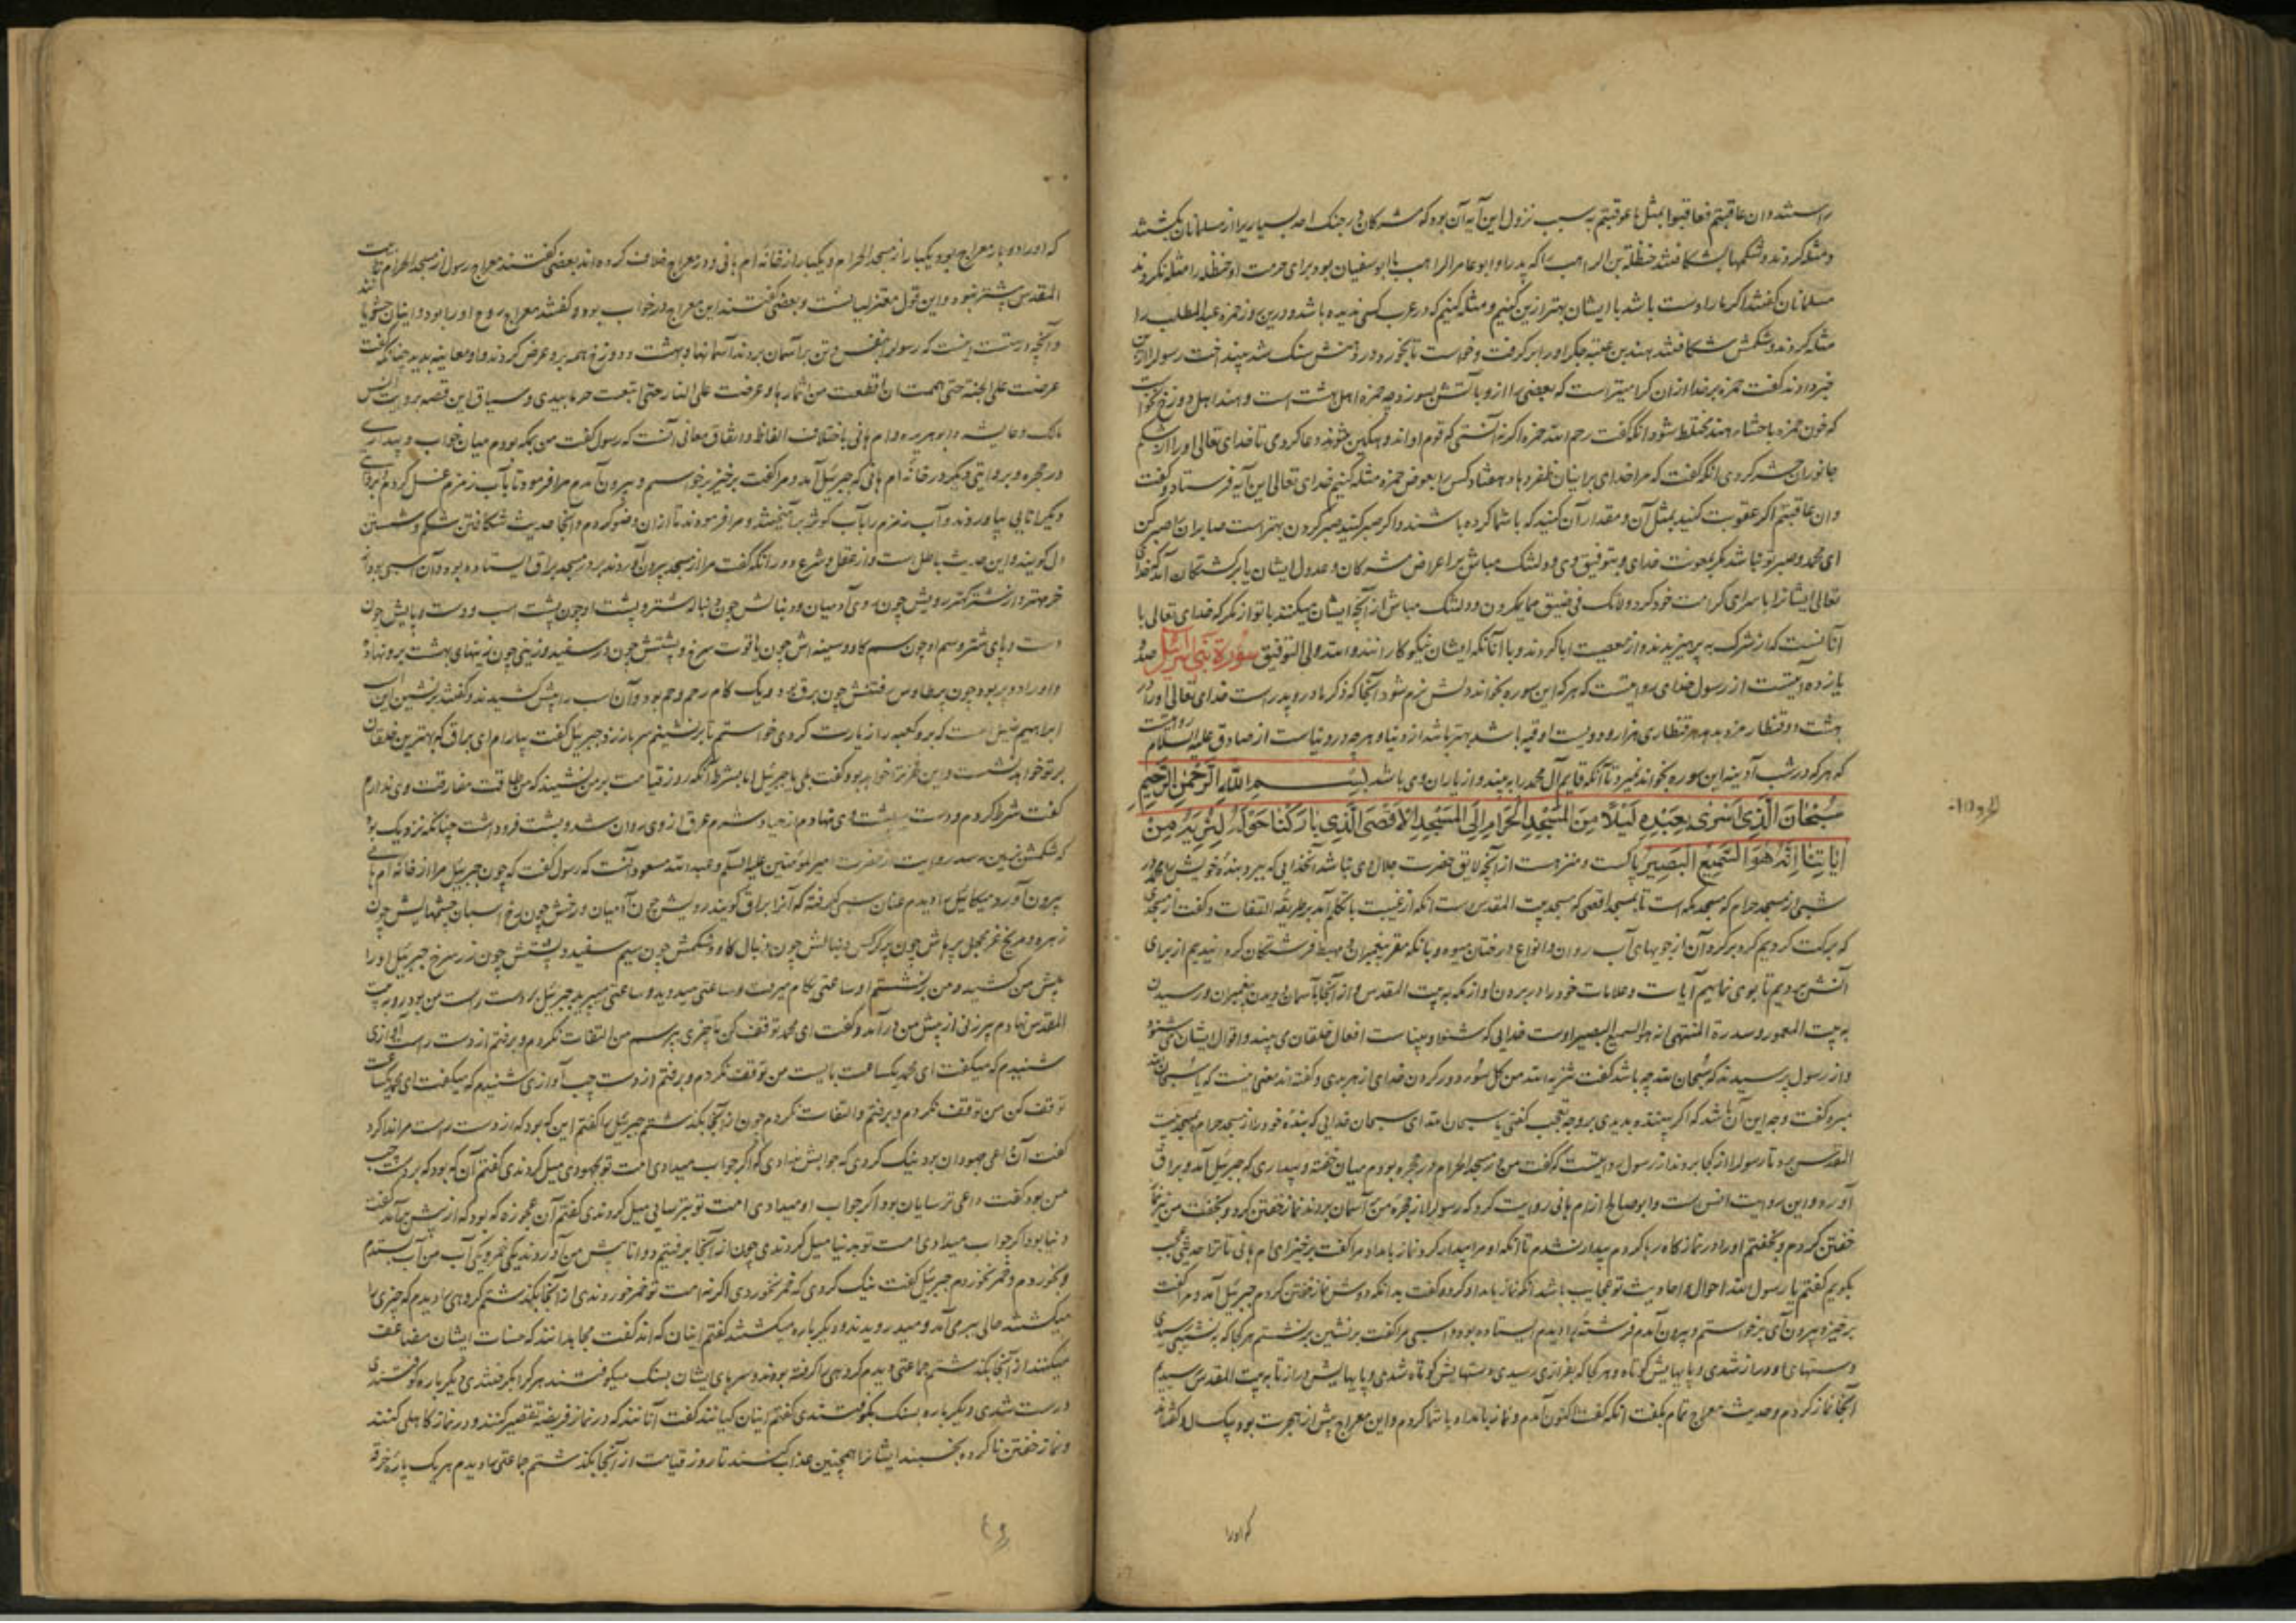 راستند وان عاقبتم فعاقبوا بمثل ما عوقبتم به سبب نزول این آیه آن بود که مشرکان در جنک احد بسیاریرا از مسلمانان بکشتند
و مثله کردند و شکمها بشکافتند حنظلة بن الراهب را که پدر او ابو عامر الراهب با ابو سفیان بود برای حرمت او حنظله را مثله نکردند
مسلمانان کفتند اکر ما را دست باشد با ایشان بهتر ازین کنیم و مثله کنیم که در عرب کسی ندیده باشد و درین روز حمزه عبدالمطلب را
مثله کردند و شکمش بشکافتند هند بن عتبه جکر او را بر کرفت و خواست تا بخورد در دهنش سنک شد بینداخت رسول را ازین
خبر دادند کفت حمزه بر خدا از ان کرامیتر است که بعضی را ازو بآتش بسوزد چه حمزه اهل بهشت است و هند اهل دوزخ
که خون حمزه با احشاء هند مختلط شود انکه کفت رحم الله حمزه اکر نه آنستی که قوم او اندوهکین شوند دعا کردمی تا خدای تعالی او را از شکم
جانوران حشر کردی انکه کفت که مرا خدای بر اینان ظفر دهاد هفتاد کس را بعوض حمزه مثله کنیم خدای تعالی این آیه فرستاد و کفت
وان عاقبتم اکر عقوبت کنید بمثل آن و مقدار آن کنید که با شما کرده باشند و اکر صبر کنید صبر کردن بهتر است صابران را صبر کن
ای محمد و صبر تو نباشد مکر بمعونت خدای و بتوفیق وی و دلتنک مباش برای اعراض مشرکان و عدول ایشان یا بر کشتکان
تعالی ایشانرا با سرای کرامت خود کرد ولا تک فی ضیق مما یمکرون و دلتنک مباش از آنچه ایشان میکنند با تو از مکر که خدای تعالی با
آنانست که از شرک به پرهیزیدند و از معصیت ابا کردند و با آنانکه ایشان نیکوکارانند والله ولی التوفیق سورة بنی اسرائیل صد
یازده آیتست از رسول خدای روایتست که هر که این سوره بخواند و دلش نرم شود آنجا که ذکر مادر و پدر است خدای تعالی او را در
بهشت دو قنطار مزد بدهد هر قنطاری هزار و دویست اوقیه باشد بهتر باشد از دنیا و هر چه در دنیاست از صادق علیه السلام روایتست
که هر که در شب آدینه این سوره بخواند نمیرد تا آنکه قایم آل محمد را به بیند و از یاران وی باشد بسم الله الرحمن الرحیم
سبحان الذی اسری بعبده لیلا من المسجد الحرام الی المسجد الاقصی الذی بارکنا حوله لنریه من
ایاتنا انه هو السمیع البصیر پاکست و منزهست از آنچه لایق حضرت جلال وی نباشد آنخدایی که ببرد بندهٔ خویش را محمد در
شبی از مسجد حرام که مسجد مکه است تا بمسجد اقصی که مسجد بیت المقدس است آنکه از غیبت با تکلم آمد بر طریقهٔ التفات و کفت از مسجدی
که برکت کردیم کرد بر کرد آن از جویهای آب روان و انواع درختان میوه و بانکه مقر پیغمبران و مهبط فرشتکان کردانیدیم از برای
آنش ببردیم تا بوی نماییم آیات و علامات خود را در بردن او از مکه به بیت المقدس و از آنجا بآسمان و دیدن پیغمبران و رسیدن
به بیت المعمور و سدرة المنتهی انه هو السمیع البصیر اوست خدایی که شنوا و بیناست افعال خلقان می بیند و اقوال ایشان می شنود
و از رسول پرسیدند که سبحان الله چه باشد کفت تنزیه الله من کل سوء دور کردن خدای از هر بدی و کفته اند معنی اینست که یا سبحان الله
مبرد کفت وجه این آن باشد که اکر بیننده بدیدی بر وجه تعجب کفتی یا سبحان الله ای سبحان خدایی که بنده خود را از مسجد حرام بمسجد بیت
المقدس برد تا رسول را از کجا بردند از رسول روایتست که کفت من در مسجد الحرام در حجره بودم میان خفته و بیداری که جبرئیل آمد و براق
آورد و این روایت انس است و ابو صالح از ام هانی روایت کرد که رسول را از حجرهٔ من بآسمان بردند نماز خفتن کرد و بخفت من نیز نماز
خفتن کردم و بخفتم او را در نماز کاه رها کردم بیدار نشدم تا انکه او مرا بیدار کرد نماز بامداد مرا کفت برخیز ای ام هانی تا ترا حدیثی عجب
بکویم کفتم یا رسول الله احوال و احادیث تو عجایب باشد انکه نماز بامداد کرد و کفت بدانکه دوش نماز خفتن کردم جبرئیل آمد و مرا کفت
برخیز و بیرون آی برخواستم و بیرون آمدم فرشته را دیدم ایستاده بود و اسبی مرا کفت برنشین برنشستم هر کجا که به نشیبی رسیدی
دستهای او دراز شدی و پایهایش کوتاه و هر کجا که بفرازی رسیدی دستهایش کوتاه شدی و پایهایش دراز تا به بیت المقدس رسیدیم
آنجا نماز کردم و حدیث معراج تمام بکفت انکه کفت اکنون آمدم و نماز بامداد با شما کردم و این معراج پیش از هجرت بود بیک سال و کفته اند
که او را
که او را دو بار معراج بود یکبار از مسجد الحرام و یکبار از خانهٔ ام هانی و در معراج خلاف کرده اند بعضی کفتند معراج رسول از مسجد الحرام تا بیت
المقدس بیشتر نبود و این قول معتزلیانست و بعضی کفتند این معراج در خواب بود و کفتند معراج روح او را بود و اینان حشویانند
و آنچه درستست اینست که رسول را بنفس و تن بر آسمان بردند آسمانها و بهشت و دوزخ همه برو عرض کردند و او معاینه بدید چنانکه کفت
عرضت علی الجنة حتی هممت ان اقطعت من اثمارها و عرضت علی النار حتی اتقیت حرها بیدی و سیاق این قصه بروایت انس
مالک و عایشه و ابو هریره و ام هانی باختلاف الفاظ و اتفاق معانی آنست که رسول کفت من بمکه بودم میان خواب و بیداری
در حجره و بروایتی دیکر در خانهٔ ام هانی که جبرئیل آمد و مرا کفت برخیز برخواستم و بیرون آمدم مرا فرمود تا بآب زمزم غسل کردم
دیکر انایی بیاوردند و آب زمزم را بآب کوثر بر آمیختند و مرا فرمودند تا ازان وضو کردم و آنجا حدیث شکافتن شکم و شستن
دل کویند و این حدیث باطل است و از عقل و شرع دور انکه کفت مرا از مسجد بیرون آوردند بر در مسجد براق ایستاده بود و آن اسبی بود از
خر مهتر و از شتر کمتر رویش چون روی آدمیان و دنبالش چون دنبالهٔ شتر و پشت او چون پشت اسب و دست و پایش چون
دست و پای شتر و سم او چون سم کاو و سینه اش چون یاقوت سرخ و پشتش چون در سفید و زینی چون زینهای بهشت برو نهاده
و او را دو پر بود چون پر طاوس رفتنش چون برق بود و یک کام و آن اسب را پیش کشیدند و کفتند برنشین این اسب
ابراهیم خلیل است که برو کعبه را زیارت کردی خواستم تا برنشینم سر باز زد جبرئیل کفت بیارام ای براق که بهترین خلقان
بر تو خواهد نشست و این کفت بلی یا جبرئیل اما بشرط آنکه روز قیامت بر من نشیند که من طاقت مفارقت وی ندارم
کفت شرط کردم و دست بر پشت وی نهادم از حیا و شرم عرق از وی روان شد و پشت فرو داشت چنانکه نزدیک بود
که شکمش بزمین رسد روایت از حضرت امیر المؤمنین علیه السلام و عبدالله مسعود آنست که رسول کفت که چون جبرئیل مرا از خانهٔ ام هانی
بیرون آورد میکائیل را دیدم عنان اسبی کرفته که آنرا براق کویند رویش چون آدمیان و رخش چون رخ اسبان چشمهایش چون
زهره و مریخ پرهاش چون پر کرکس دنبالش چون دنبال کاو و شکمش چون سیم سفید و پشتش چون زر سرخ جبرئیل او را
پیش من کشید و من برنشستم او ساعتی بکام میرفت و ساعتی میدوید و ساعتی میپرید جبرئیل بر دست راست من بود رو به بیت
المقدس نهادم پیرزنی از پیش من در آمد و کفت ای محمد توقف کن تا چیزی بپرسم من التفات نکردم و برفتم از دست راست آوازی
شنیدم که میکفت ای محمد یکساعت بایست من توقف نکردم و برفتم و از دست چپ آوازی شنیدم که میکفت ای محمد یکساعت
توقف کن من توقف نکردم و برفتم و التفات نکردم چون از آنجا بکذشتم جبرئیل را کفتم این که بود که از دست راست مرا ندا کرد
کفت آن داعی جهودان بود نیک کردی که جوابش ندادی که اکر جواب میدادی امت تو بجهودی میل کردندی کفتم آن که بود که بر دست چپ
من بود کفت داعی ترسایان بود اکر جواب او میدادی امت تو بترسایی میل کردندی کفتم آن عجوزه که بود که از پیش من بر آمد کفت
دنیا بود اکر جواب میدادی امت تو به دنیا میل کردندی چون از آنجا برفتیم دو انا پیش من آوردند یکی خمر و یکی آب من آب بستدم
و بخوردم و خمر نخوردم جبرئیل کفت نیک کردی که خمر نخوردی اکر نه امت تو خمر خوردندی از آنجا بکذشتم کروهی را دیدم که چیزی را
میکشتند حالی ببری آمد و میدرویدند و دیکر باره میکشتند کفتم اینان که اند کفت مجاهدانند که حسنات ایشان مضاعف
میکنند از آنجا بکذشتم جماعتی دیدم کروهی را کرفته بودند و سرهای ایشان بسنک میکوفتند هر کرا بکرفتندی دیکر باره کوفتندی
درست شدی و دیکر باره بسنک بکوفتندی کفتم اینان کیانند کفت آنانند که در نماز فریضه تقصیر کنند و در نماز کاهلی کنند
و نماز خفتن ناکرده بخسبند ایشانرا همچنین عذاب کنند تا روز قیامت از آنجا بکذشتم جماعتی را دیدم هر یک پاره خرقه